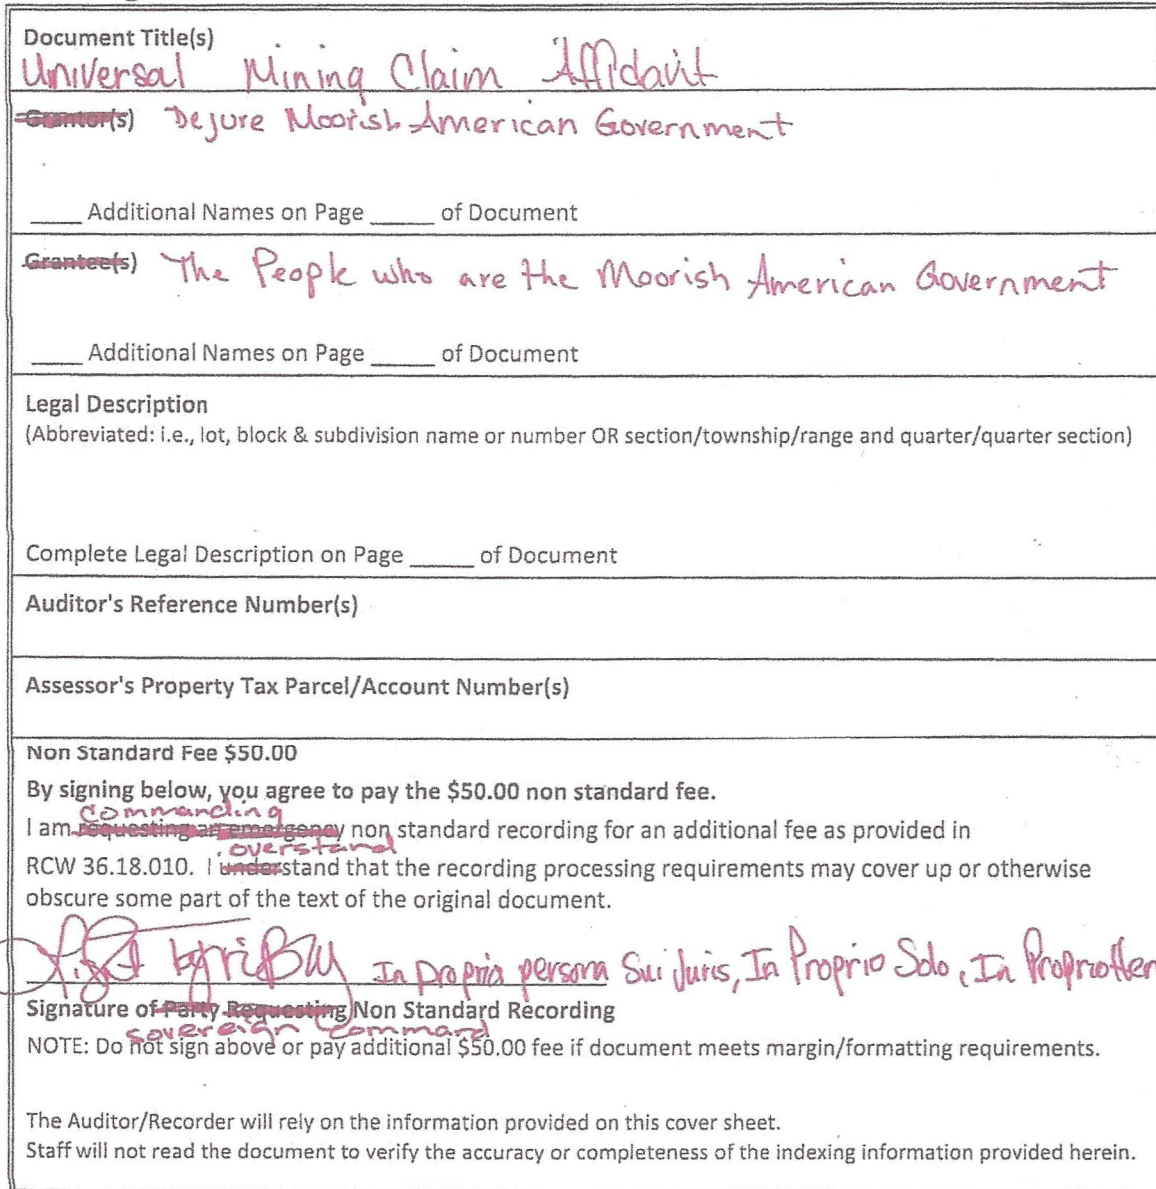 Document Title(s)
Universal Mining Claim Affidavit
Grantor(s) Dejure Moorish American Government
____ Additional Names on Page _____ of Document
Grantee(s) The People who are the Moorish American Government
____ Additional Names on Page _____ of Document
Legal Description
(Abbreviated: i.e., lot, block & subdivision name or number OR section/township/range and quarter/quarter section)
Complete Legal Description on Page _____ of Document
Auditor's Reference Number(s)
Assessor's Property Tax Parcel/Account Number(s)
Non Standard Fee $50.00
By signing below, you agree to pay the $50.00 non standard fee.
commanding
I am requesting an emergency non standard recording for an additional fee as provided in
overstand
RCW 36.18.010. I understand that the recording processing requirements may cover up or otherwise
obscure some part of the text of the original document.
In propria persona Sui Juris, In Proprio Solo, In Proprio Heredes
Signature of Party Requesting Non Standard Recording
sovereign command
NOTE: Do not sign above or pay additional $50.00 fee if document meets margin/formatting requirements.
The Auditor/Recorder will rely on the information provided on this cover sheet.
Staff will not read the document to verify the accuracy or completeness of the indexing information provided herein.